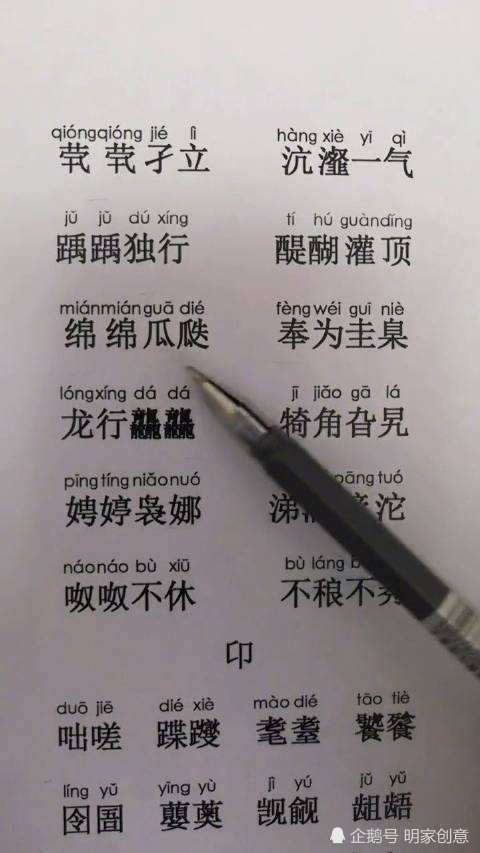 qióngqióng jié lì hàng xiè yī qì
茕茕孑立 沆瀣一气
jǔ jǔ dú xíng tí hú guàndǐng
踽踽独行 醍醐灌顶
miánmiánguā dié fèng wéi guī niè
绵绵瓜瓞 奉为圭臬
lóngxíng dá dá jī jiǎo gā lá
龙行龘龘 犄角旮旯
pīng tíng niǎo nuó pāng tuó
娉婷袅娜 涕 沱
náo náo bù xiū bù láng
呶呶不休 不稂不
印
duō jiē dié xiè mào dié tāo tiè
咄嗟 蹀躞 耄耋 饕餮
líng yǔ yīng yù jì yú jǔ yǔ
囹圄 蘡薁 觊觎 龃龉
企鹅号 明家创意